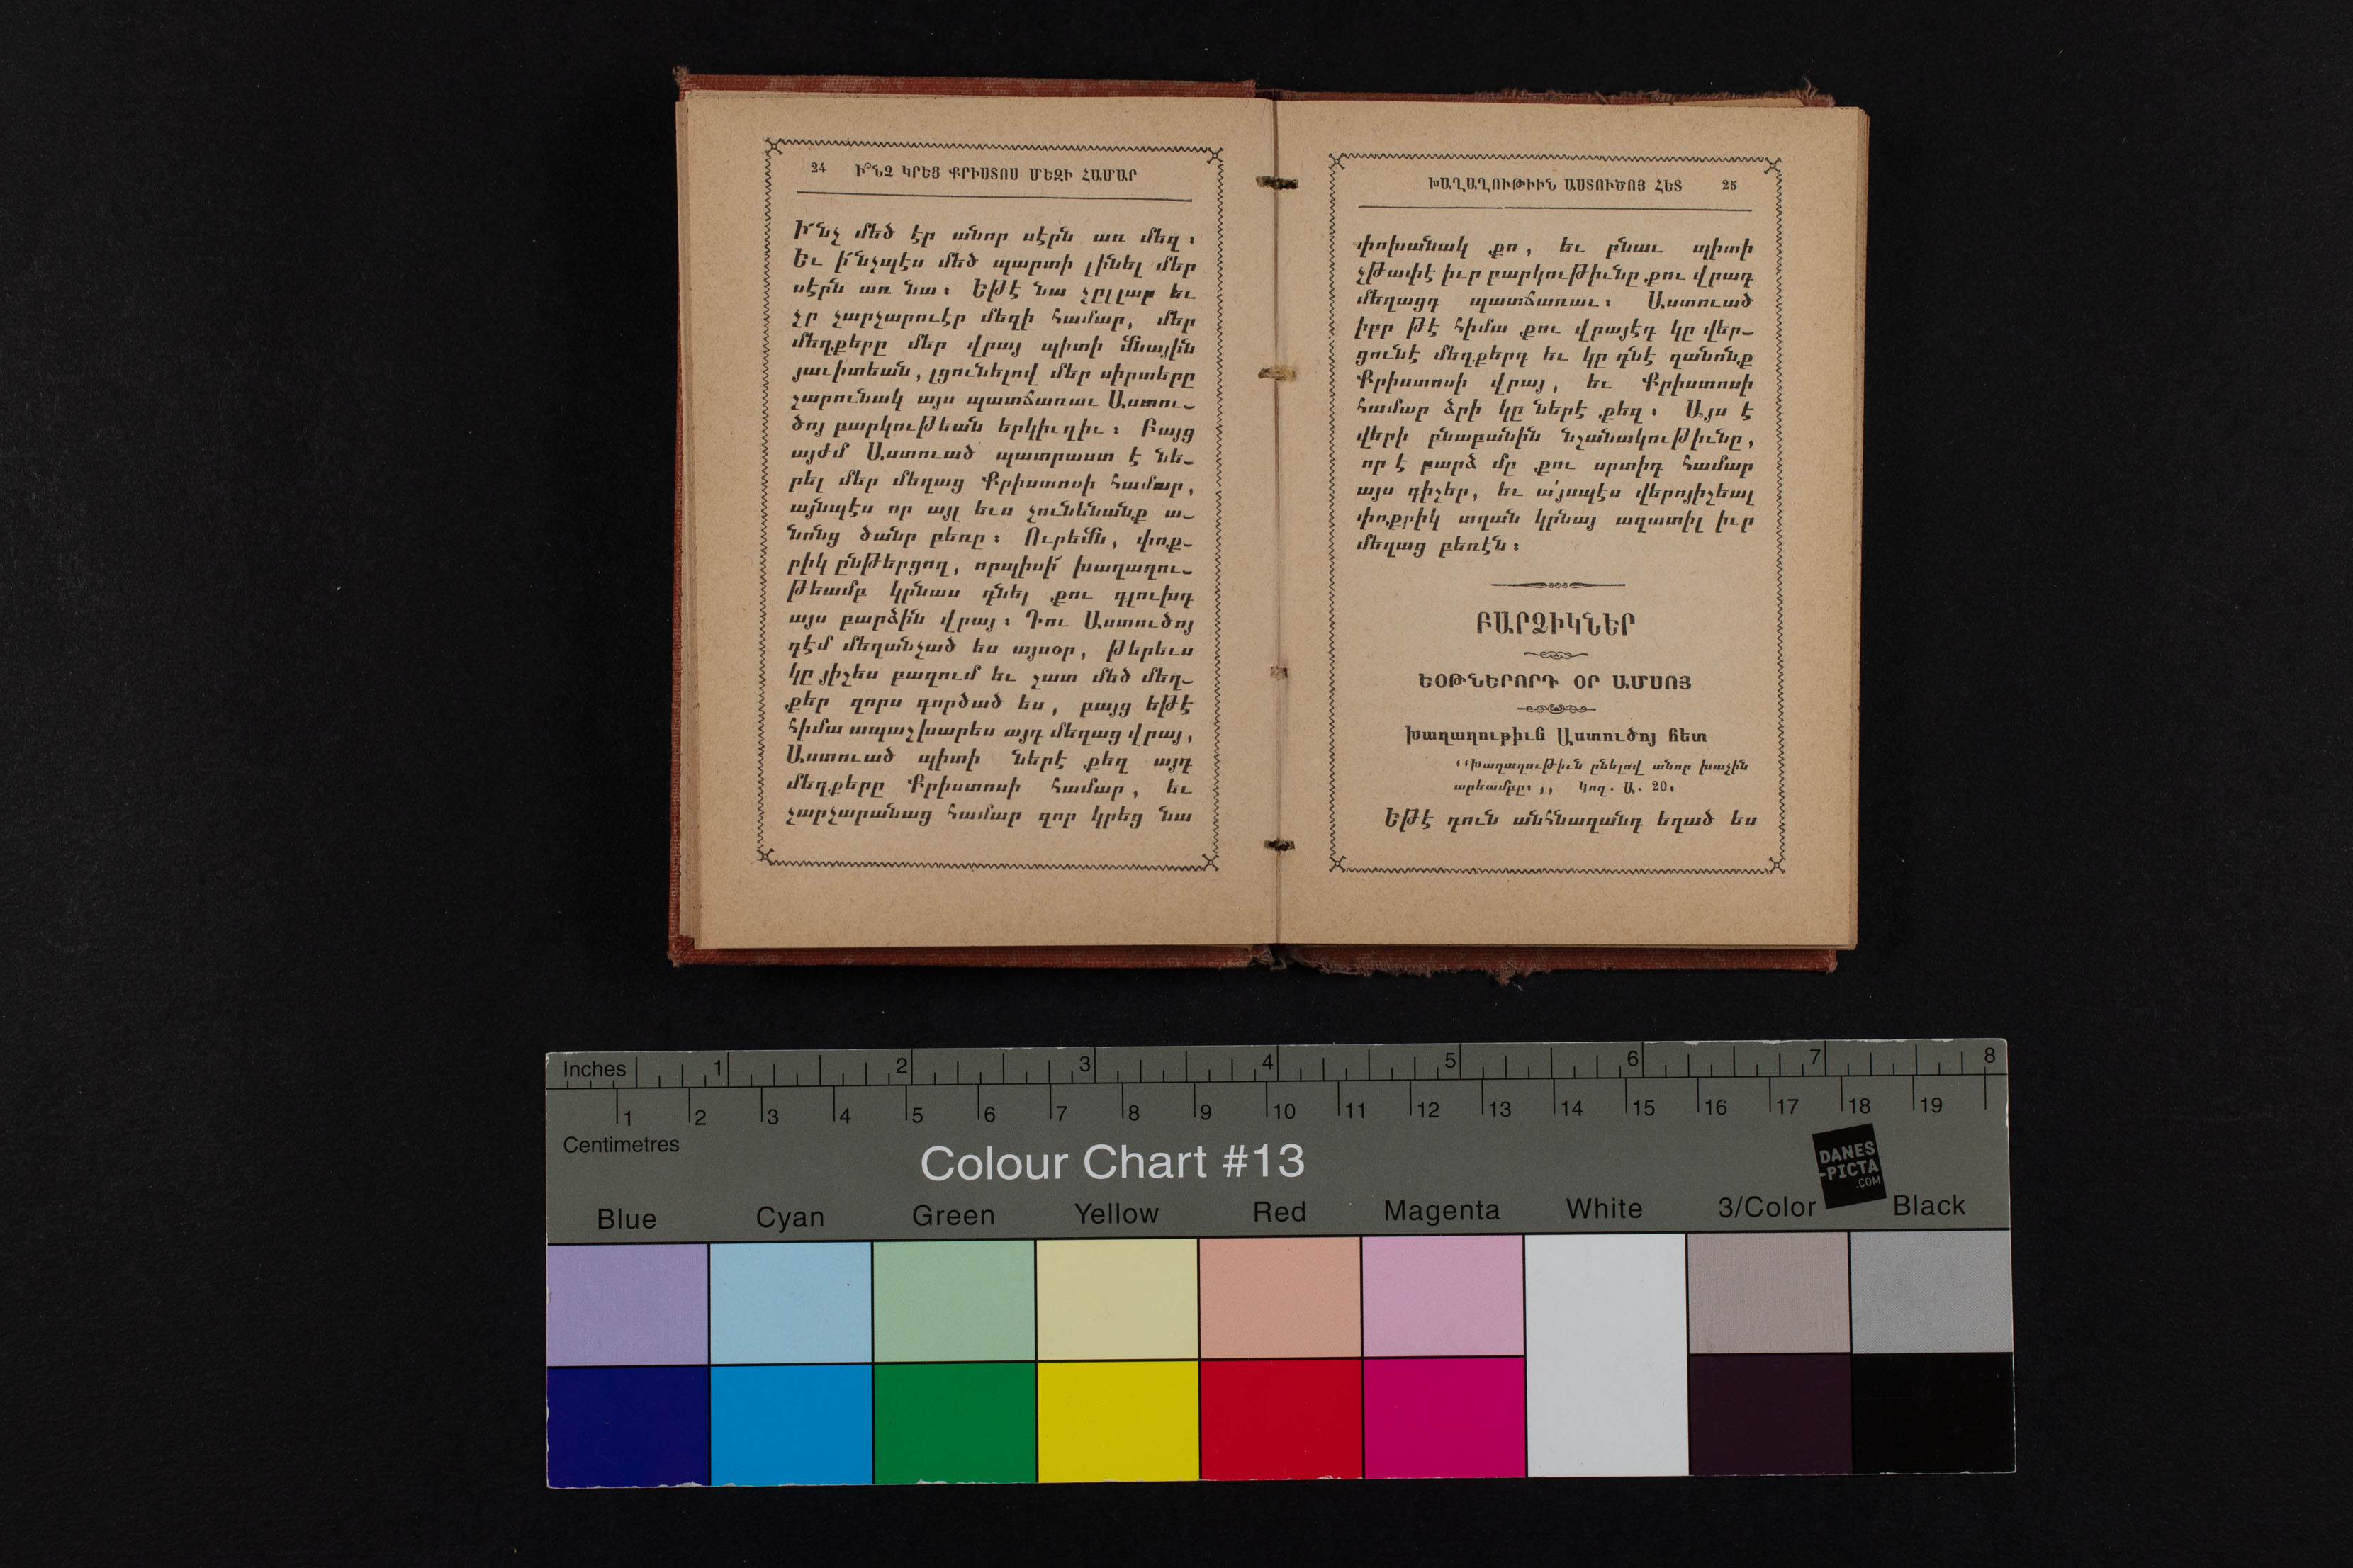 24 Ի՞ՆՉ ԿՐԵՑ ՔՐԻՍՏՈՍ ՄԵԶԻ ՀԱՄԱՐ
Ի՜նչ մեծ էր անոր սէրն առ մեզ։
Եւ ի՜նչպէս մեծ պարտի լինել մեր
սէրն առ նա։ Եթէ նա չըլլար եւ
չը չարչարուէր մեզի համար, մեր
մեղքերը մեր վրայ պիտի մնային
յաւիտեան, լցունելով մեր սիրտերը
շարունակ այս պատճառաւ Աստու–
ծոյ բարկութեան երկիւղիւ։ Բայց
այժմ Աստուած պատրաստ է նե–
րել մեր մեղաց Քրիստոսի համար,
այնպէս որ այլ եւս չունենանք ա–
նոնց ծանր բեռը։ Ուրեմն, փոք–
րիկ ընթերցող, որպիսի՜ խաղաղու–
թեամբ կրնաս դնել քու գլուխդ
այս բարձին վրայ։ Դու Աստուծոյ
դէմ մեղանչած ես այսօր, թերեւս
կը յիշես բազում եւ շատ մեծ մեղ–
քեր զորս գործած ես, բայց եթէ
հիմա ապաշխարես այդ մեղաց վրայ,
Աստուած պիտի ներէ քեզ այդ
մեղքերը Քրիստոսի համար, եւ
չարչարանաց համար զոր կրեց նա
ԽԱՂԱՂՈՒԹԻՒՆ ԱՍՏՈՒԾՈՅ ՀԵՏ 25
փոխանակ քո, եւ բնաւ պիտի
չթափէ իւր բարկութիւնը քու վրադ
մեղացդ պատճառաւ։ Աստուած
իբր թէ հիմա քու վրայէդ կը վեր–
ցունէ մեղքերդ եւ կը դնէ զանոնք
Քրիստոսի վրայ, եւ Քրիստոսի
համար ձրի կը ներէ քեզ։ Այս է
վերի բնաբանին նշանակութիւնը,
որ է բարձ մը քու սրտիդ համար
այս գիշեր, եւ ա՛յսպէս վերոյիշեալ
փոքրիկ տղան կրնայ ազատիլ իւր
մեղաց բեռէն։
ԲԱՐՁԻԿՆԵՐ
ԵՕԹՆԵՐՈՐԴ ՕՐ ԱՄՍՈՅ
Խաղաղութիւն Աստուծոյ հետ
‘‘Խաղաղութիւն ընելով անոր խաչին
արեամբը։,, Կող. Ա. 20։
Եթէ դուն անհնազանդ եղած ես
Inches 1 2 3 4 5 6 7 8
1 2 3 4 5 6 7 8 9 10 11 12 13 14 15 16 17 18 19
Centimetres
Colour Chart #13
DANES
-PICTA
.COM
Blue Cyan Green Yellow Red Magenta White 3/Color Black